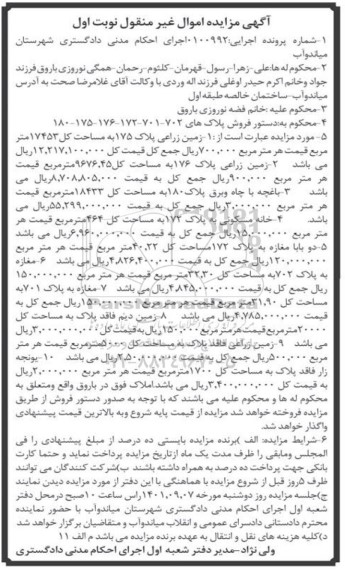 آگهی مزایده اموال غیر منقول نوبت اول
۱-شماره پرونده اجرایی:۰۱۰۰۹۹۲اجرای احکام مدنی دادگستری شهرستان
میاندوآب
۲-محکوم له ها:علی-زهرا-رسول-قهرمان-کلثوم-رحمان-همگی نوروزی باروق فرزند
جواد وخانم اکرم حیدر اوغلی فرزند اله وردی با وکالت آقای غلامرضا صحت به آدرس
میاندوآب-ساختمان خالصه طبقه اول
۳-محکوم علیه :خانم فضه نوروزی باروق
۴-محکوم به:دستور فروش پلاک های ۷۰۲-۷۰۱-۱۷۶-۱۷۲-۱۷۵-۱۸۰
۵- مورد مزایده عبارت است از :۱-زمین زراعی پلاک ۱۷۵به مساحت کل۱۷۴۵۳متر
مربع قیمت هر متر مربع ۷۰۰,۰۰۰ریال جمع کل قیمت کل ۱۲,۲۱۷,۱۰۰,۰۰۰ریال می
باشد ۲-زمین زراعی پلاک ۱۷۶به مساحت کل۹۶۷۶,۴۵مترمربع قیمت
هر متر مربع ۹۰۰,۰۰۰ریال جمع کل به قیمت ۸,۷۰۸,۸۰۵,۰۰۰ریال می
باشد ۳-باغچه با چاه وبرق پلاک۱۸۰به مساحت کل ۱۸۴۳۳مترمربع قیمت
هر متر مربع ۳,۰۰۰,۰۰۰ریال جمع کل به قیمت ۵۵,۲۹۹,۰۰۰,۰۰۰ریال می
باشد ۴-خانه مسکونی پلاک ۱۷۲به مساحت کل ۴۶۴مترمربع قیمت هر
متر مربع ۱۵,۰۰۰,۰۰۰ریال جمع کل به قیمت ۶,۹۶۰,۰۰۰,۰۰۰ریال می باشد
۵-دو بابا مغازه به پلاک ۱۷۲مساحت کل ۴۰,۲۲متر مربع قیمت هر متر مربع
۱۲۰,۰۰۰,۰۰۰ریال جمع کل به قیمت ۴,۸۲۶,۴۰۰,۰۰۰ریال می باشد ۶-مغازه
به پلاک ۷۰۲به مساحت کل ۳۲,۳۰متر مربع قیمت هر متر مربع ۱۵۰,۰۰۰,۰۰۰
ریال جمع کل به قیمت ۴,۸۴۵,۰۰۰,۰۰۰ریال می باشد ۷-مغازه به پلاک ۷۰۱به
مساحت کل ۳۱,۹۰متر مربع قیمت هر متر مربع ۱۵۰,۰۰۰,۰۰۰ریال جمع کل به
قیمت ۴,۷۸۵,۰۰۰,۰۰۰ریال می باشد ۸-زمین دیم فاقد پلاک به مساحت کل
۲۰۰۰۰مترمربع قیمت هرمترمربع ۱۵۰,۰۰۰ریال به قیمت کل ۳,۰۰۰,۰۰۰,۰۰۰ریال
می باشد ۹-زمین زراعی فاقد پلاک به مساحت کل ۵۰۰۰مترمربع قیمت هر متر
مربع ۵۰۰,۰۰۰ریال جمع کل به قیمت ۲,۵۰۰,۰۰۰,۰۰۰ریال می باشد ۱۰-یونجه
زار فاقد پلاک به مساحت کل ۱۷۰۰مترمربع قیمت هر متر مربع ۲,۰۰۰,۰۰۰ریال
به قیمت کل ۳,۴۰۰,۰۰۰,۰۰۰ریال می باشد.املاک فوق در باروق واقع ومتعلق به
محکوم له ها و محکوم علیه می باشند که با توجه به صدور دستور فروش از طریق
مزایده فروخته خواهد شد مزایده از قیمت پایه شروع وبه بالاترین قیمت پیشنهادی
واگذار خواهد شد.
۶-شرایط مزایده: الف )برنده مزایده بایستی ده درصد از مبلغ پیشنهادی را فی
المجلس ومابقی را ظرف مدت یک ماه ازتاریخ مزایده پرداخت نماید و حتما کارت
بانکی جهت پرداخت ده درصد به همراه داشته باشند ب)شرکت کنندگان می توانند
ظرف ۵روز قبل از شروع مزایده با هماهنگی با این دفتر از مورد مزایده دیدن نمایند
ج)جلسه مزایده روز دوشنبه مورخه ۱۴۰۱,۰۹,۰۷راس ساعت ۱۰صبح درمحل دفتر
شعبه اول اجرای احکام مدنی دادگستری شهرستان میاندوآب با حضور نماینده
محترم دادستانی دادسرای عمومی و انقلاب میاندوآب و متقاضیان برگزار خواهد شد
د)کلیه هزینه های نقل و انتقال به عهده برنده مزایده می باشد م الف ۱۱
ولی نژاد-مدیر دفتر شعبه اول اجرای احکام مدنی دادگستری